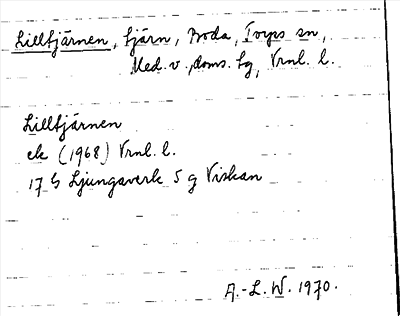 Lilltjärnen, tjärn, Boda, Torps sn,
Med. v. doms. tg, Vrnl. l.
Lilltjärnen
ek (1968) Vrnl. l.
17 G Ljungaverk 5 g Viskan
A.-L. W. 1970.